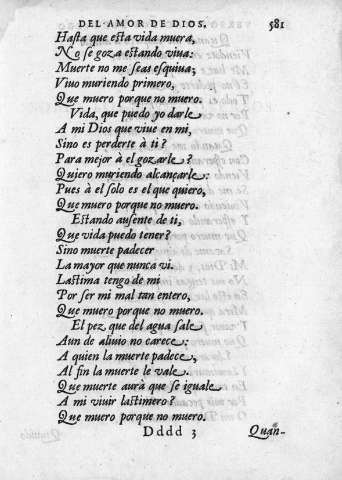 DEL AMOR DE DIOS. 581
Hasta que esta vida muera,
No se goza estando viua:
Muerte no me seas esquiua;
Viuo muriendo primero,
Que muero porque no muero.
Vida, que puedo yo darle
A mi Dios que viue en mi,
Sino es perderte à ti?
Para mejor à el gozarle?
Quiero muriendo alcançarle:
Pues à el solo es el que quiero,
Que muero porque no muero.
Estando ausente de ti,
Que vida puedo tener?
Sino muerte padecer
La mayor que nunca vi.
Lastima tengo de mi
Por ser mi mal tan entero,
Que muero porque no muero.
El pez que del agua sale
Aun de aliuio no carece:
A quien la muerte padece,
Al fin la muerte le vale.
Que muerte aurà que se iguale
A mi viuir lastimero?
Que muero porque no muero.
Dddd 3 Quan-